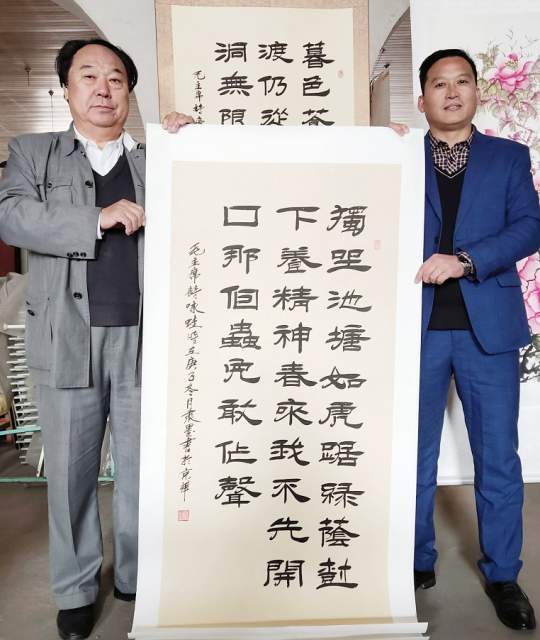 暮色蒼
渡仍從
洞無限
毛主席詩
獨坐池塘如虎踞綠蔭樹
下養精神春來我不先開
口那個蟲兒敢作聲
毛主席詩咏蛙歲在庚子冬月袁墨書於京華